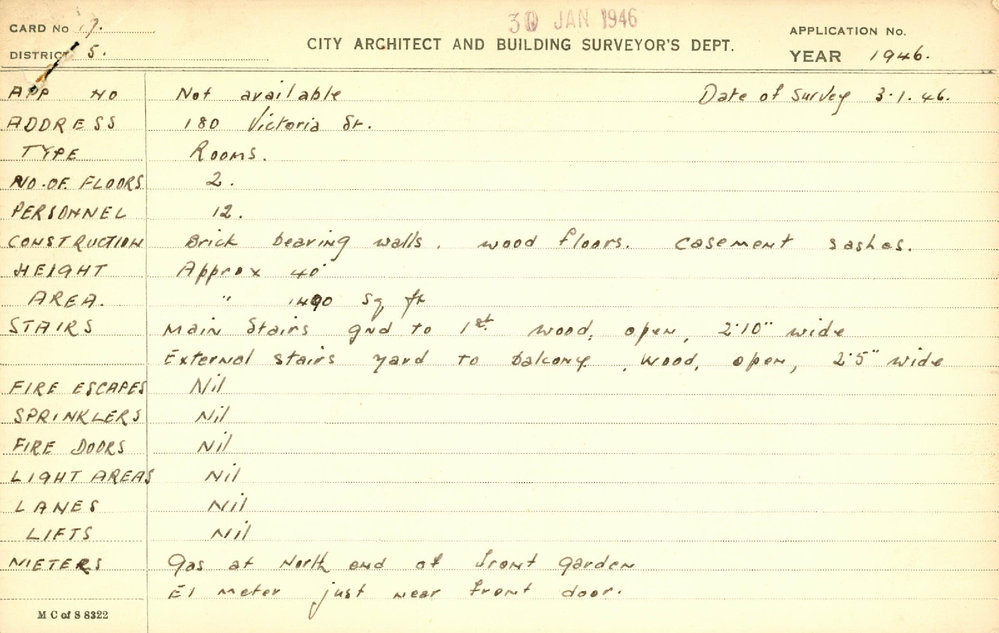 30 JAN 1946
CARD No 17.
DISTRICT 5.
CITY ARCHITECT AND BUILDING SURVEYOR'S DEPT.
APPLICATION No.
YEAR 1946.
APP NO Not available Date of Survey 3.1.46.
ADDRESS 180 Victoria St.
TYPE Rooms.
NO. OF FLOORS 2.
PERSONNEL 12.
CONSTRUCTION Brick bearing walls. wood floors. casement sashes.
HEIGHT Approx 40'
AREA. " 1490 Sq ft
STAIRS Main Stairs gnd to 1st wood, open, 2'10" wide
External stairs yard to balcony, wood, open, 2'5" wide
FIRE ESCAPES Nil
SPRINKLERS Nil
FIRE DOORS Nil
LIGHT AREAS Nil
LANES Nil
LIFTS Nil
METERS Gas at North end of front garden
El meter just near front door.
M C of S 8322